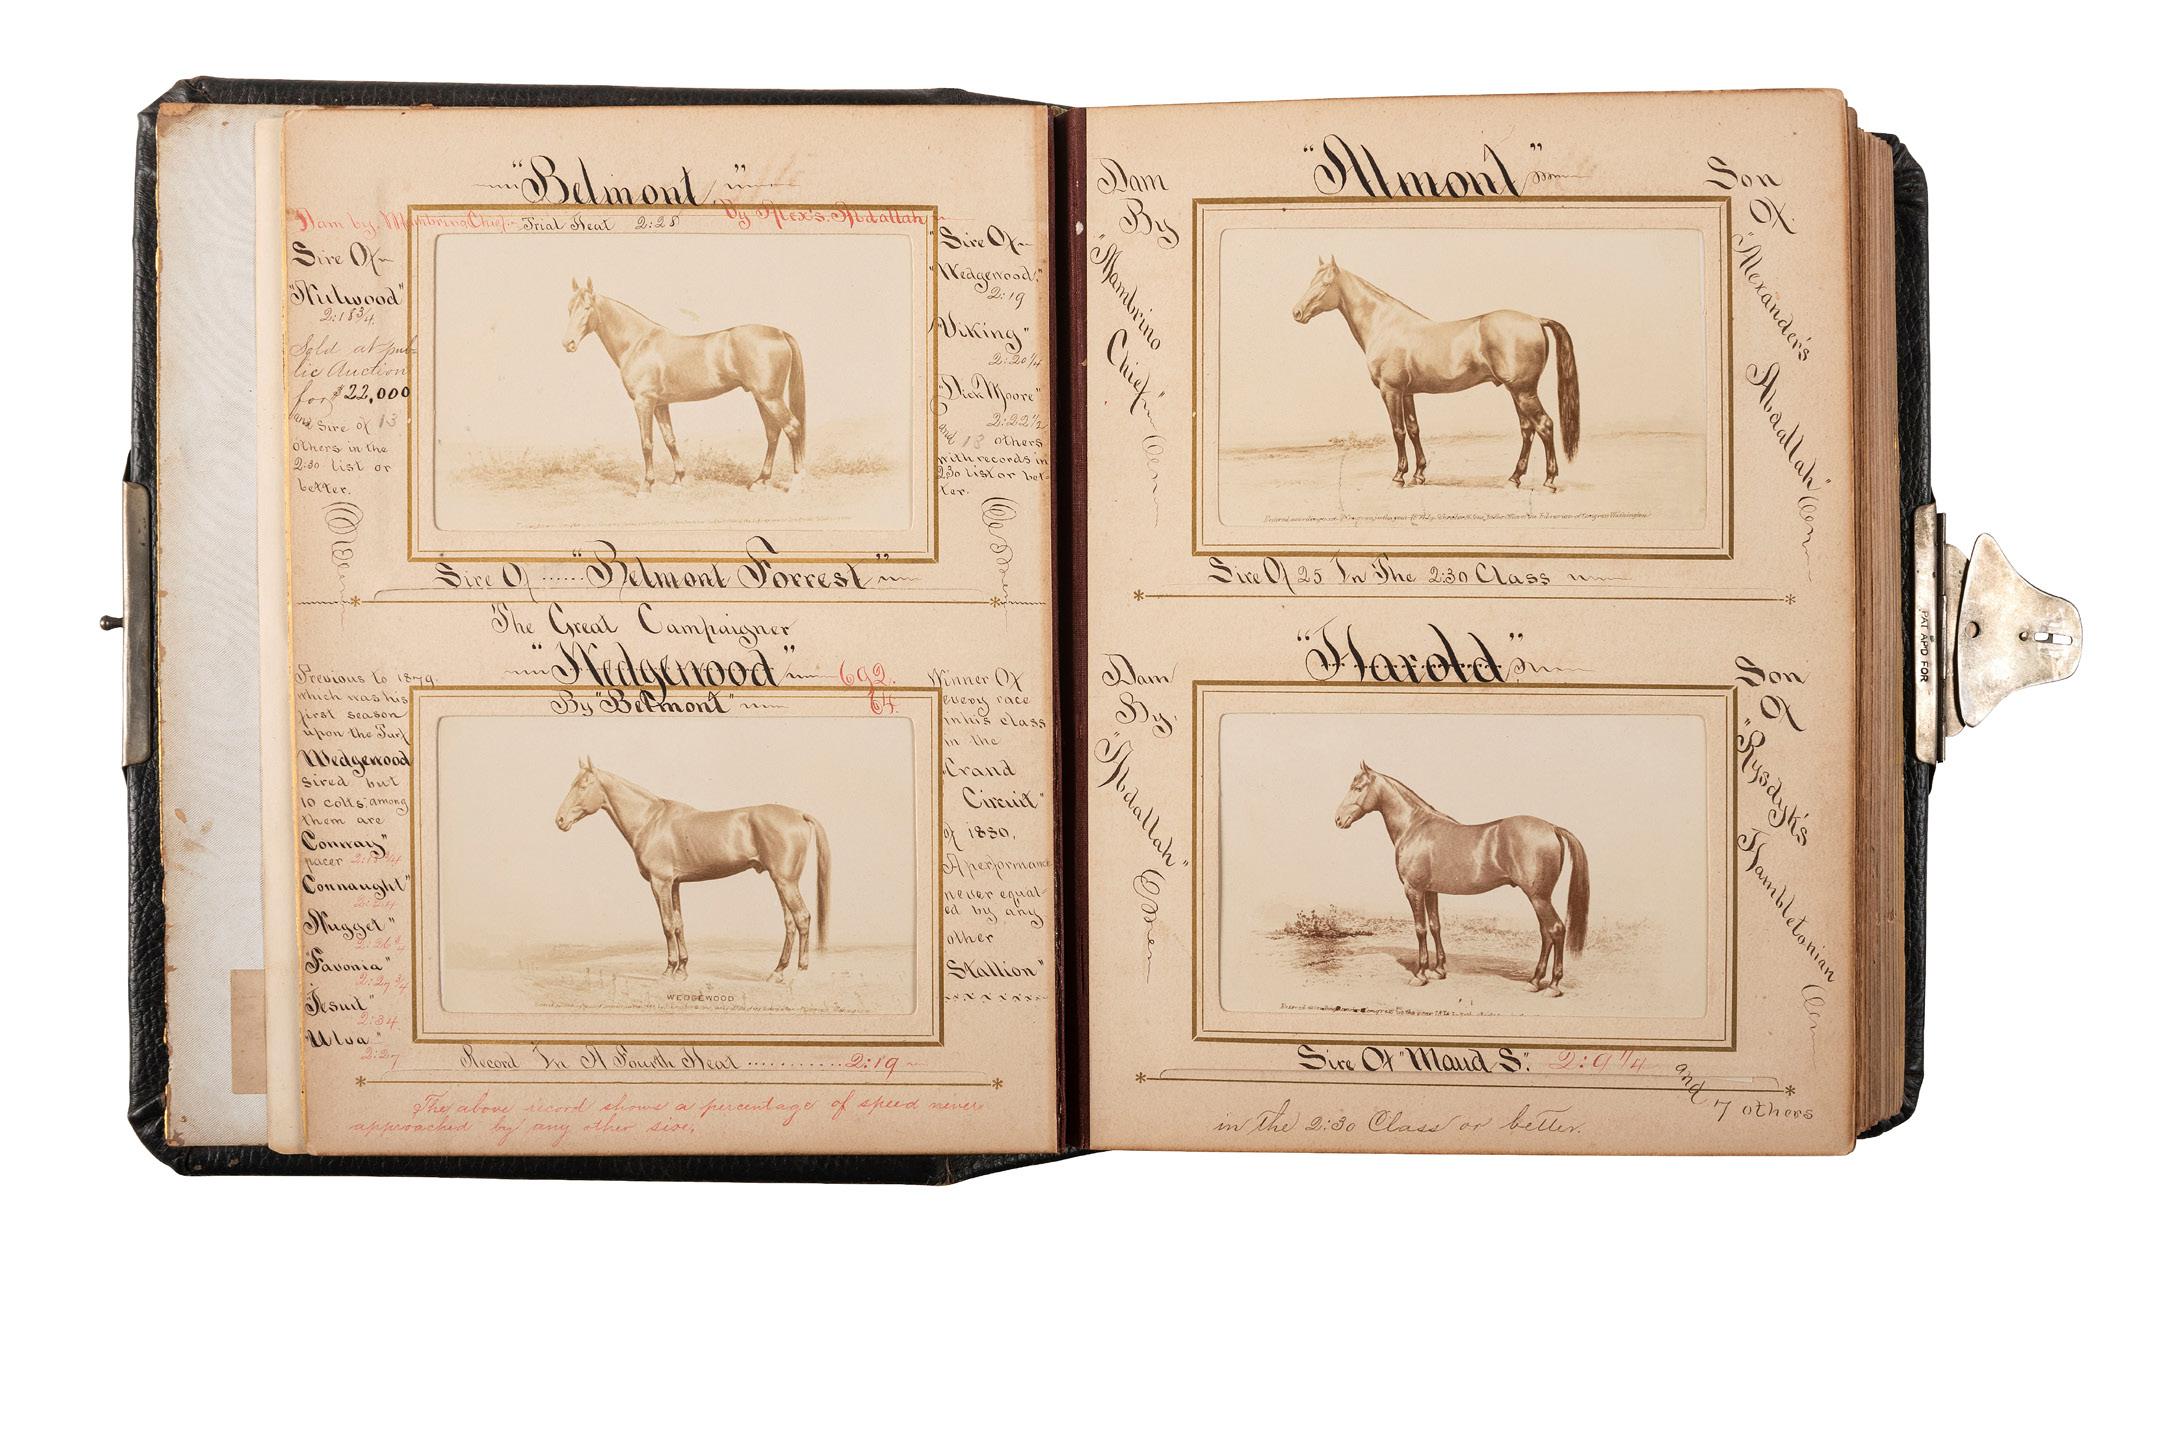 "Belmont,"
Dam by. Mambrino Chief. Trial Heat 2:28 By Alex's. Abdallah
Sire Of
"Nutwood"
2:18¾.
Sold at pub-
lic Auction
for $22,000
and Sire of 13
others in the
2:30 list or
better.
Sire Of
"Wedgewood."
2:19
"Viking"
2:20¼
"Dick Moore"
2:22½
and 18 others
with records in
2:30 list or bet-
ter.
Sire Of ...... "Belmont Forrest"
The Great Campaigner
"Wedgewood" 692.
By "Belmont" 64.
Previous to 1879.
which was his
first season
upon the Turf
Wedgewood
Sired but
10 colts; among
them are
Conway"
pacer
Connaught"
2:24
Nugget"
2:26¾
"Favonia"
2:27¾
Jesuit"
2:34.
Ulva"
2:27
WEDGEWOOD
Winner Of
every race
in his class
in the
Grand
Circuit"
of 1880.
A performance
never equal-
ed by any
other
Stallion"
Record In A Fourth Heat ........... 2:19
The above record shows a percentage of speed never
approached by any other sire.
"Almont"
Dam
By
"Mambrino
Chief"
Son
Of.
"Alexander's
Abdallah"
Sire Of 25 In The 2:30 Class
"Harold"
Dam
By.
"Abdallah"
Son
Of
"Rysdyk's
Hambletonian
Sire Of "Maud S". 2:9¼ and 7 others
in the 2:30 Class or better.
PAT APD FOR